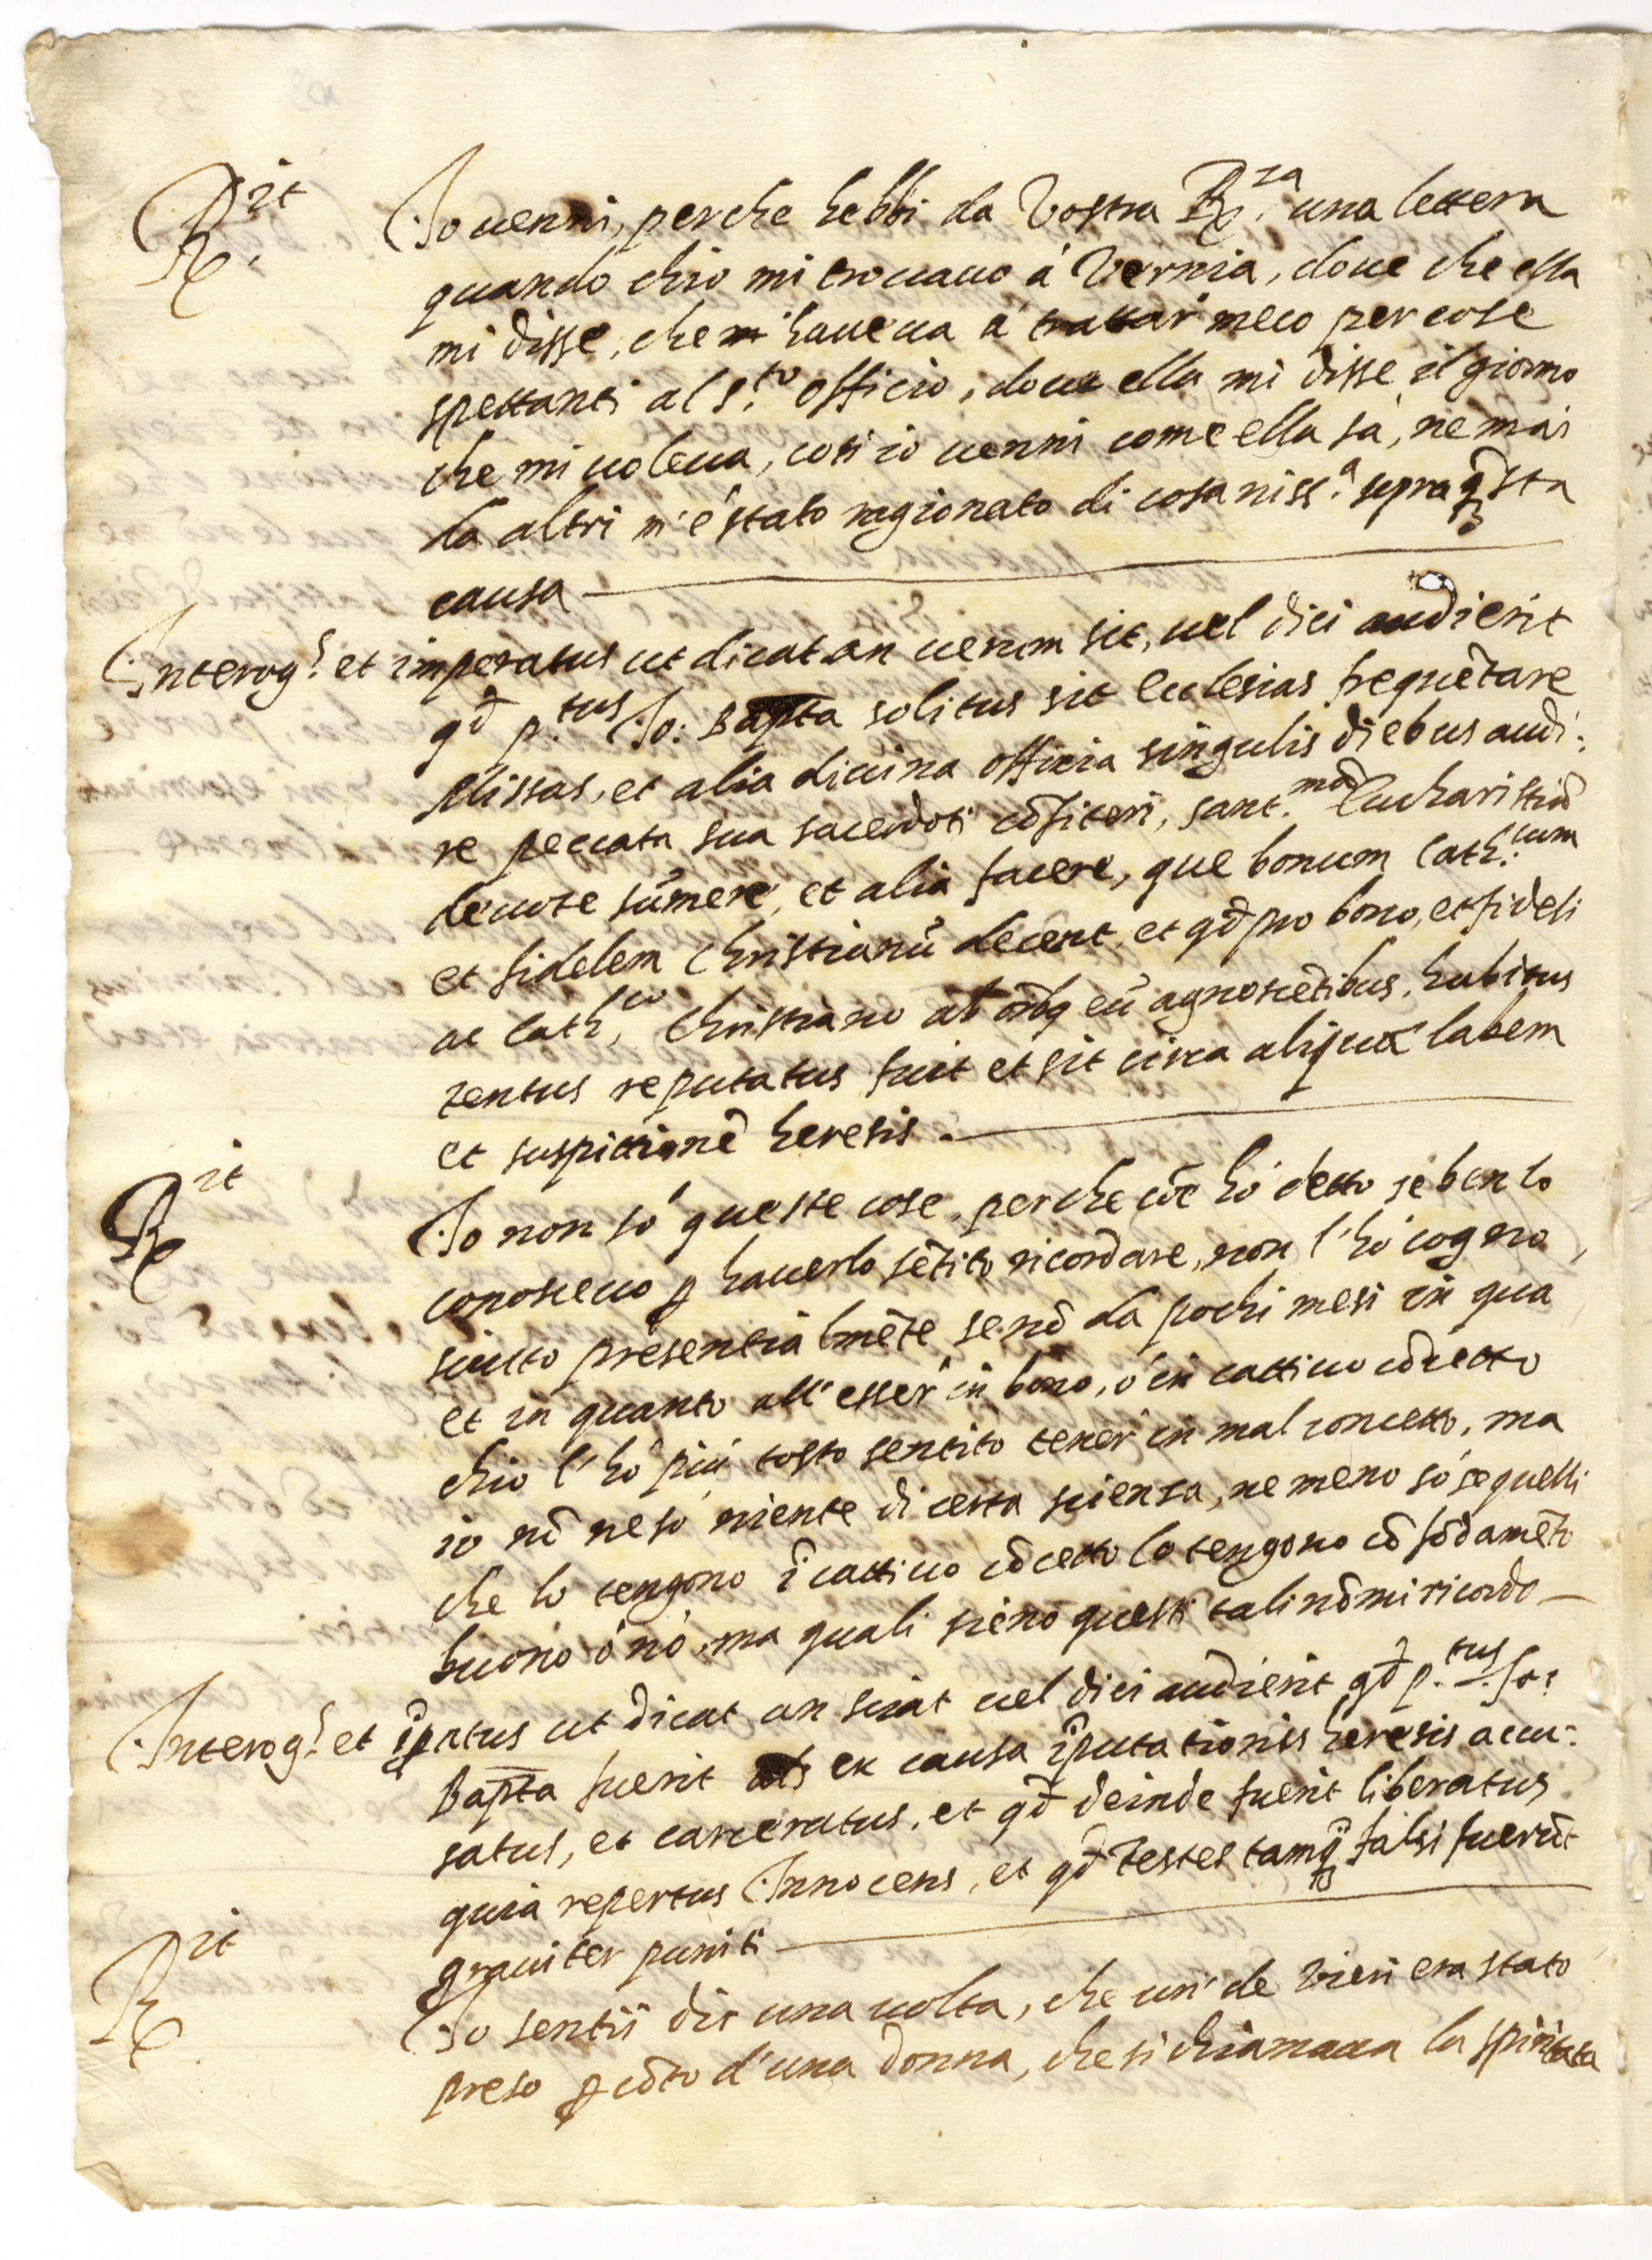 R.it Io uenni, perche hebbi da Vostra R.za una lettera
quando chio mi trouauo à Vernia, doue che ella
mi disse, che haueua à trattar meco per cose
spettanti al S.to Officio, doue ella mi disse il giorno
che mi uoleua, così io uenni come ella sà, ne mai
da altri m'è stato ragionato di cosa niss.a sopra q̃sta
causa
Interog.s et imperatus ut dicat an uerum sit, uel dici audierit
qd̃ p.tus Io: Bapta solitus sit Ecclesias frequẽtare
Missas, et alia diuina officia singulis diebus audi:
re peccata sua sacerdoti cõfiteri, sanct.mã Eucharistiã
deuote sũmere, et alia facere, que bonum Cath.cum
et fidelem Christianũ decent, et qd̃ pro bono, et fideli
ac Cath.co Christiano ab oĩbq eũ agnoscẽtibus, habitus
tentus reputatus fuit et sit circa aliquã labem
et suspittionẽ heresis.
R.it Io non sò queste cose, perche cõe hò detto se ben lo
conosceuo ꝑ hauerlo sẽtito ricordare, non l'hò cogno
sciutto presentialmẽte se nõ da pochi mesi in qua
et in quanto all'esser in bono, ò in cattiuo cõcetto
chio l'hò più tosto sentito tener in mal concetto, ma
io nõ ne sò niente di certa scienza, ne meno sò se quelli
che lo tengono ĩ cattiuo cõcetto lo tengono cõ fõdamẽto
buono ò nò, ma quali sieno questi tali nõ mi ricordo
Interog.s et ĩꝑatus ut dicat an sciat uel dici audierit qd̃ p.tus Io:
Bapta fuerit als ex causa ĩputationis heresis accu:
satus, et carceratus, et qd̃ deinde fuerit liberatus
quia repertus Innocens, et qd̃ Testes tamq̃ falsi fuerũt
grauiter puniti
R.it Io sentij dir una uolta, che un' de Vieri era stato
preso ꝑ cõto d'una donna, che si chiamaua la spiritata